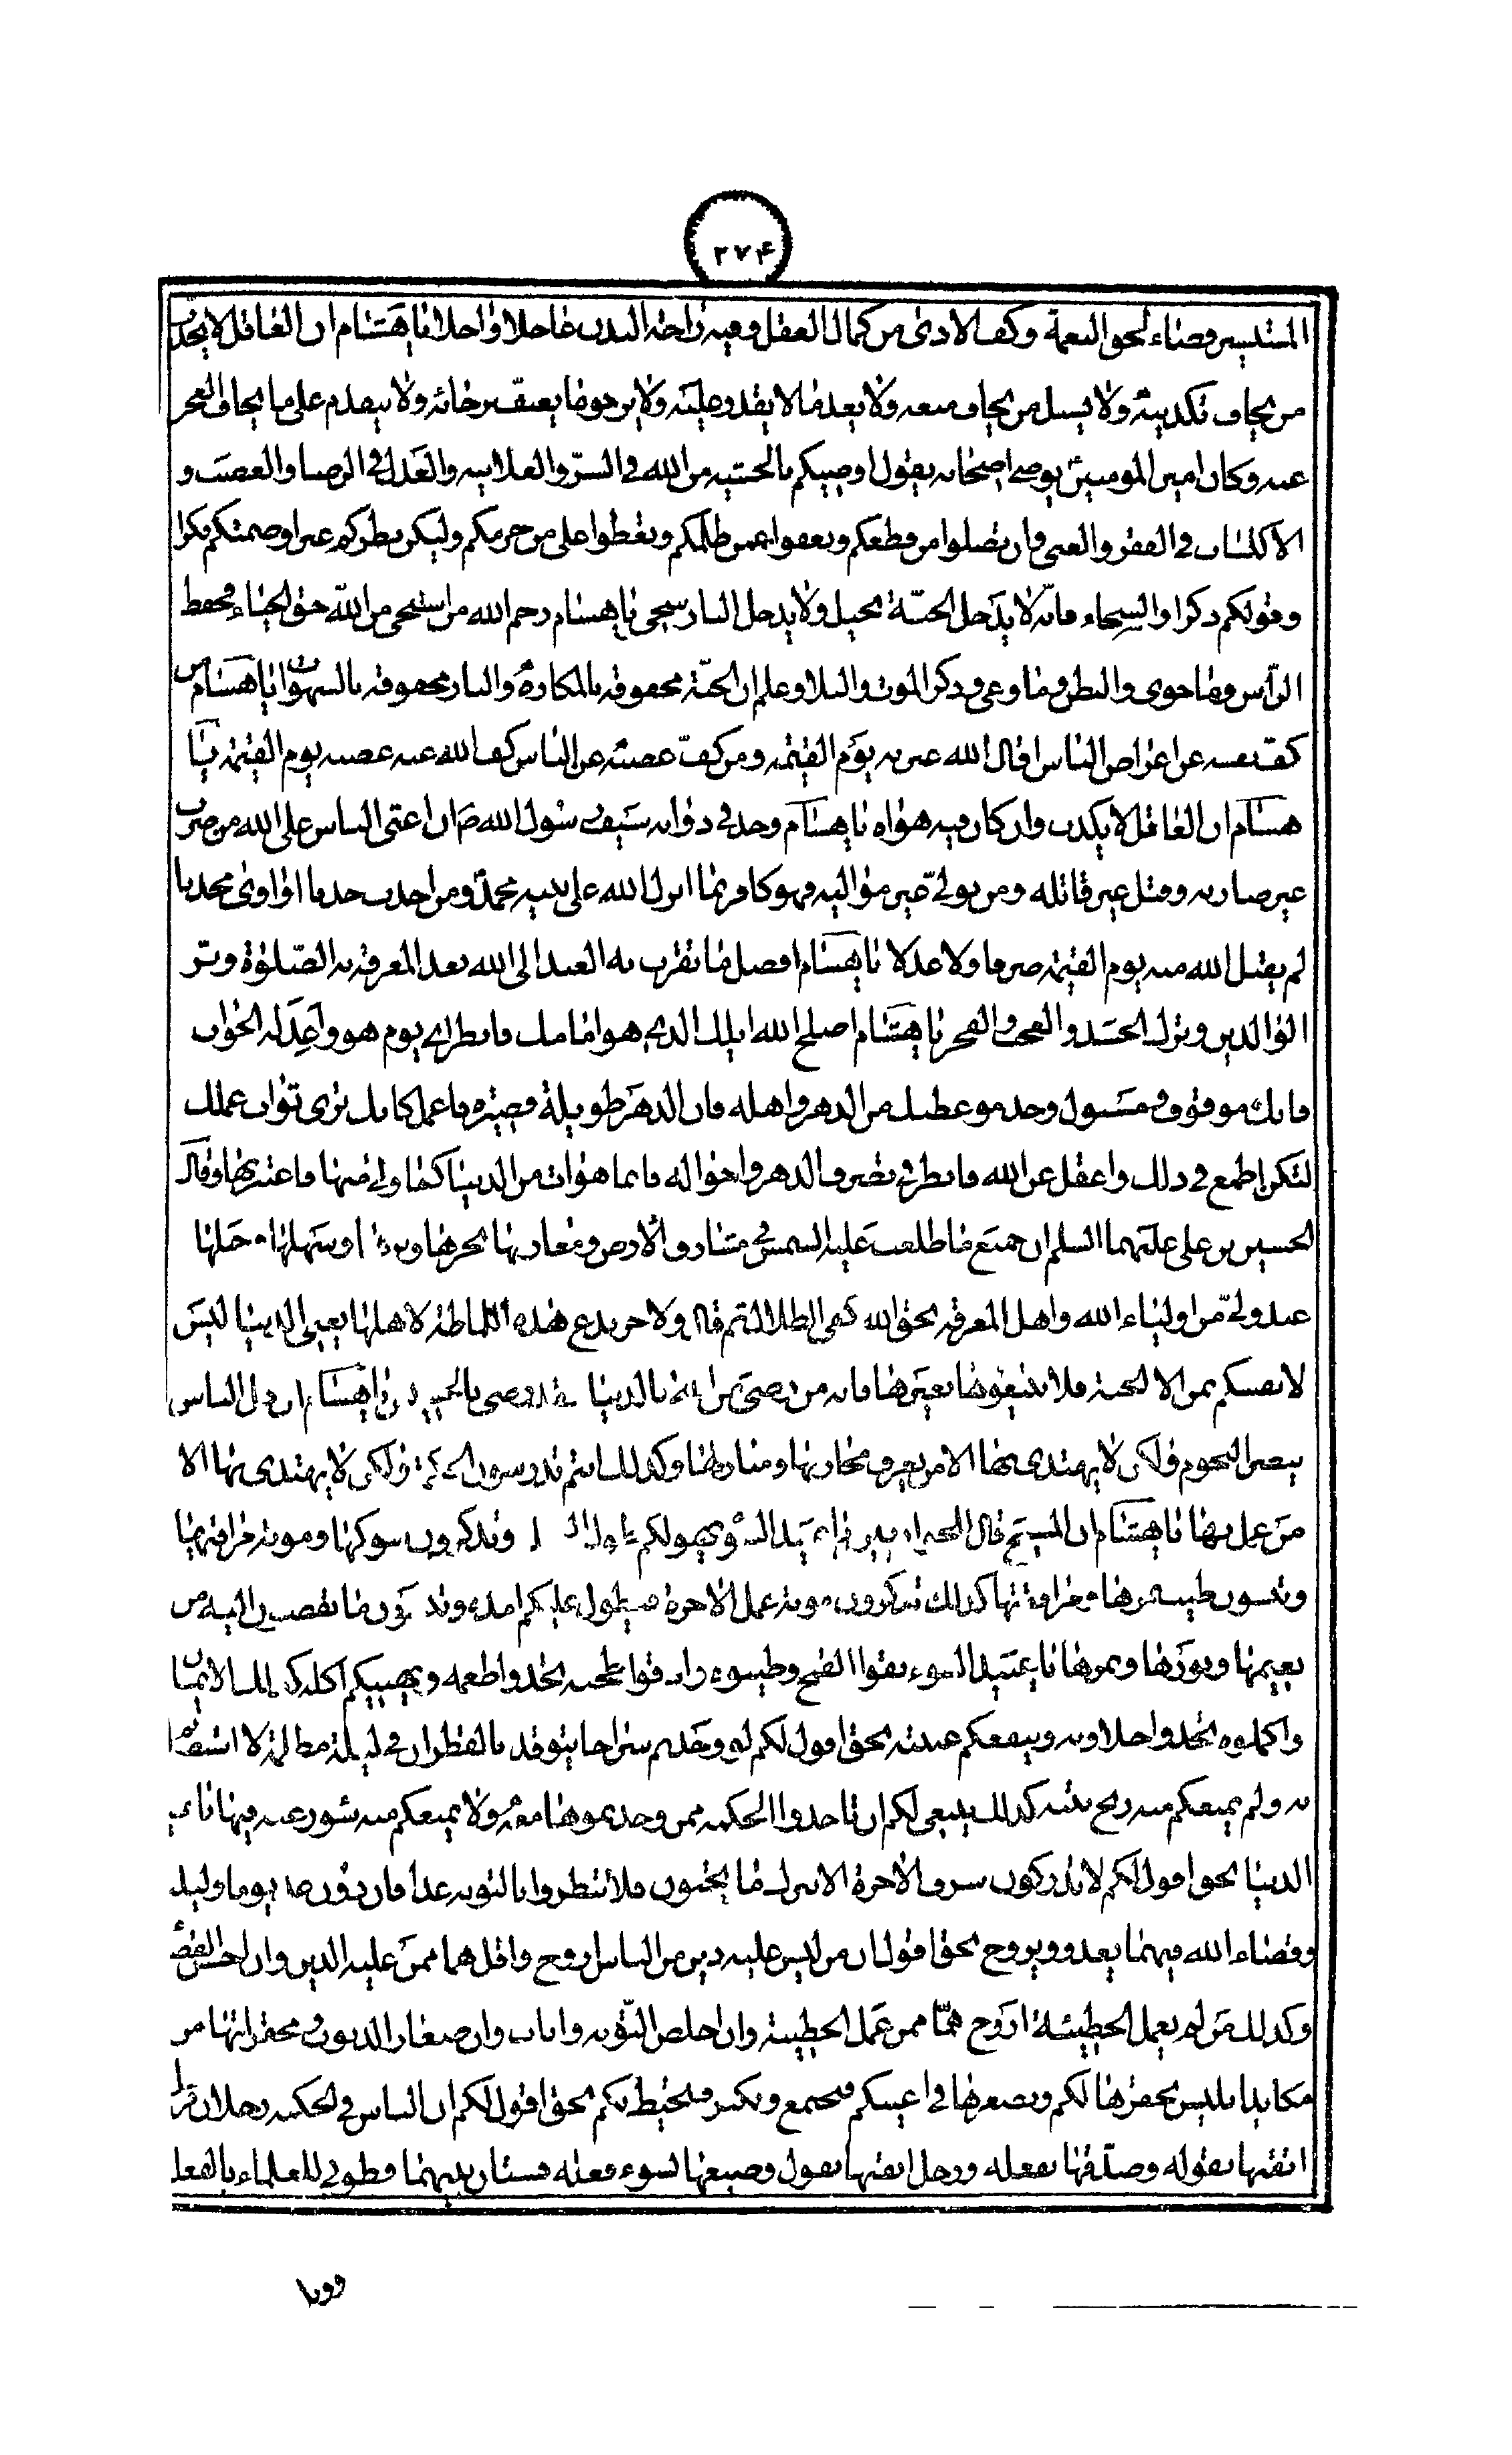 ۲۷۴
المستشير قضاء لحق النعمة وكف الاذى من كمال العقل وفيه راحة البدن عاجلا واجلا يا هشام ان العاقل لا يحدث
من يخاف تكذيبه ولا يسئل من يخاف منعه ولا يعد ما لا يقدر عليه ولا يرجو ما يعنف برجائه ولا يتقدم على ما يخاف العجز
عنه وكان امير المومنين يوصى اصحابه يقول اوصيكم بالخشية من الله فى السر والعلانيه والعدل فى الرضا والغضب و
الاكتساب فى الفقر والغنى وان تصلوا من قطعكم وتعفوا عمن ظلمكم وتعطوا على من حرمكم وليكن نظركم عبرا وصمتكم فكرا
وقولكم ذكرا والسخاء فانه لا يدخل الجنة بخيل ولا يدخل النار سخى يا هشام رحم الله من استحى من الله حق الحياء فحفظ
الرأس وما حوى والبطن وما وعى وذكر الموت والبلا وعلم ان الجنة محفوفة بالمكاره والنار محفوفة بالشهوات يا هشام من
كف نفسه عن اعراض الناس اقال الله عثرته يوم القيمة ومن كف غضبه عن الناس كف الله عنه غضبه يوم القيمة يا
هشام ان العاقل لا يكذب وان كان فيه هواه يا هشام وجد فى ذؤابة سيف رسول الله ص ان اعتى الناس على الله من ضرب
غير ضاربه وقتل غير قاتله ومن تولى غير مواليه فهو كافر بما انزل الله على نبيه محمد ومن احدث حدثا او اوى محدثا
لم يقبل الله منه يوم القيمة صرفا ولا عدلا يا هشام افضل ما تقرب به العبد الى الله بعد المعرفة به الصلوة وبر
الوالدين وترك الحسد والعجب والفخر يا هشام اصلح ايامك الذى هو امامك فانظر اى يوم هو واعد له الجواب
فانك موقوف ومسئول وخذ موعظتك من الدهر واهله فان الدهر طويلة قصيره فاعمل كانك ترى ثواب عملك
لتكن اطمع فى ذلك واعقل عن الله وانظر فى تصرف الدهر واحواله فانما هو ات من الدنيا كما ولى منها فاعتبر بها وقال
الحسين بن على عليهما السلم ان جميع ما طلعت عليه الشمس فى مشارق الارض ومغاربها بحرها وبرها وسهلها وجبلها
عند ولى من اولياء الله واهل المعرفة بحق الله كفى الظلال ثم قال ولا حر يدع هذه اللماظة لاهلها يعنى الدنيا ليس
لانفسكم ثمن الا الجنة فلا تبيعوها بغيرها فانه من رضى من الله بالدنيا فقد رضى بالخسيس يا هشام ان كل الناس
يبصر النجوم ولكن لا يهتدى بها الا من يعرف مجاريها ومنازلها وكذلك انتم تدرسون الحكمة ولكن لا يهتدى بها الا
من عمل بها يا هشام ان المسيح قال للحواريين يا عبيد السوء يهولكم طول النخلة وتذكرون شوكها ومونة مراقيها
وتنسون طيب ثمرها ومرافقتها كذلك تذكرون مونة عمل الاخرة فيطول عليكم امده وتنسون ما تفضون اليه من
نعيمها ونورها وثمرها يا عبيد السوء نقوا القمح وطيبوه وادقوا طحنه تجدوا طعمه ويهنئكم اكله كذلك الايمان
واكملوه تجدوا حلاوته وينفعكم غبه بحق اقول لكم لو وجدتم سراجا يتوقد بالقطران فى ليلة مظلمة لاستضأتم
به ولم يمنعكم منه ريح نتنه كذلك ينبغى لكم ان تاخذوا الحكمة ممن وجدتموها معه ولا يمنعكم منه سوء رغبته فيها يا عبيد
الدنيا بحق اقول لكم لا تدركون شرف الاخرة الا بترك ما تحبون فلا تنظروا بالتوبة غدا فان دون غد يوما وليلة
وقضاء الله فيهما يغدو ويروح بحق اقول ان من ليس عليه دين من الناس اروح واقل هما ممن عليه الدين وان احسن القضاء
وكذلك من لم يعمل الخطيئة اروح هما ممن عمل الخطيئة وان اخلص التوبة واناب وان صغار الذنوب ومحقراتها من
مكايد ابليس يحقرها لكم ويصغرها فى اعينكم فتجتمع وتكثر فتحيط بكم بحق اقول لكم ان الناس فى الحكمة رجلان فرجل
اتقنها بقوله وصدقها بفعله ورجل اتقنها بقوله وضيعها بسوء فعله فشتان بينهما فطوبى للعلماء بالفعل
وويل